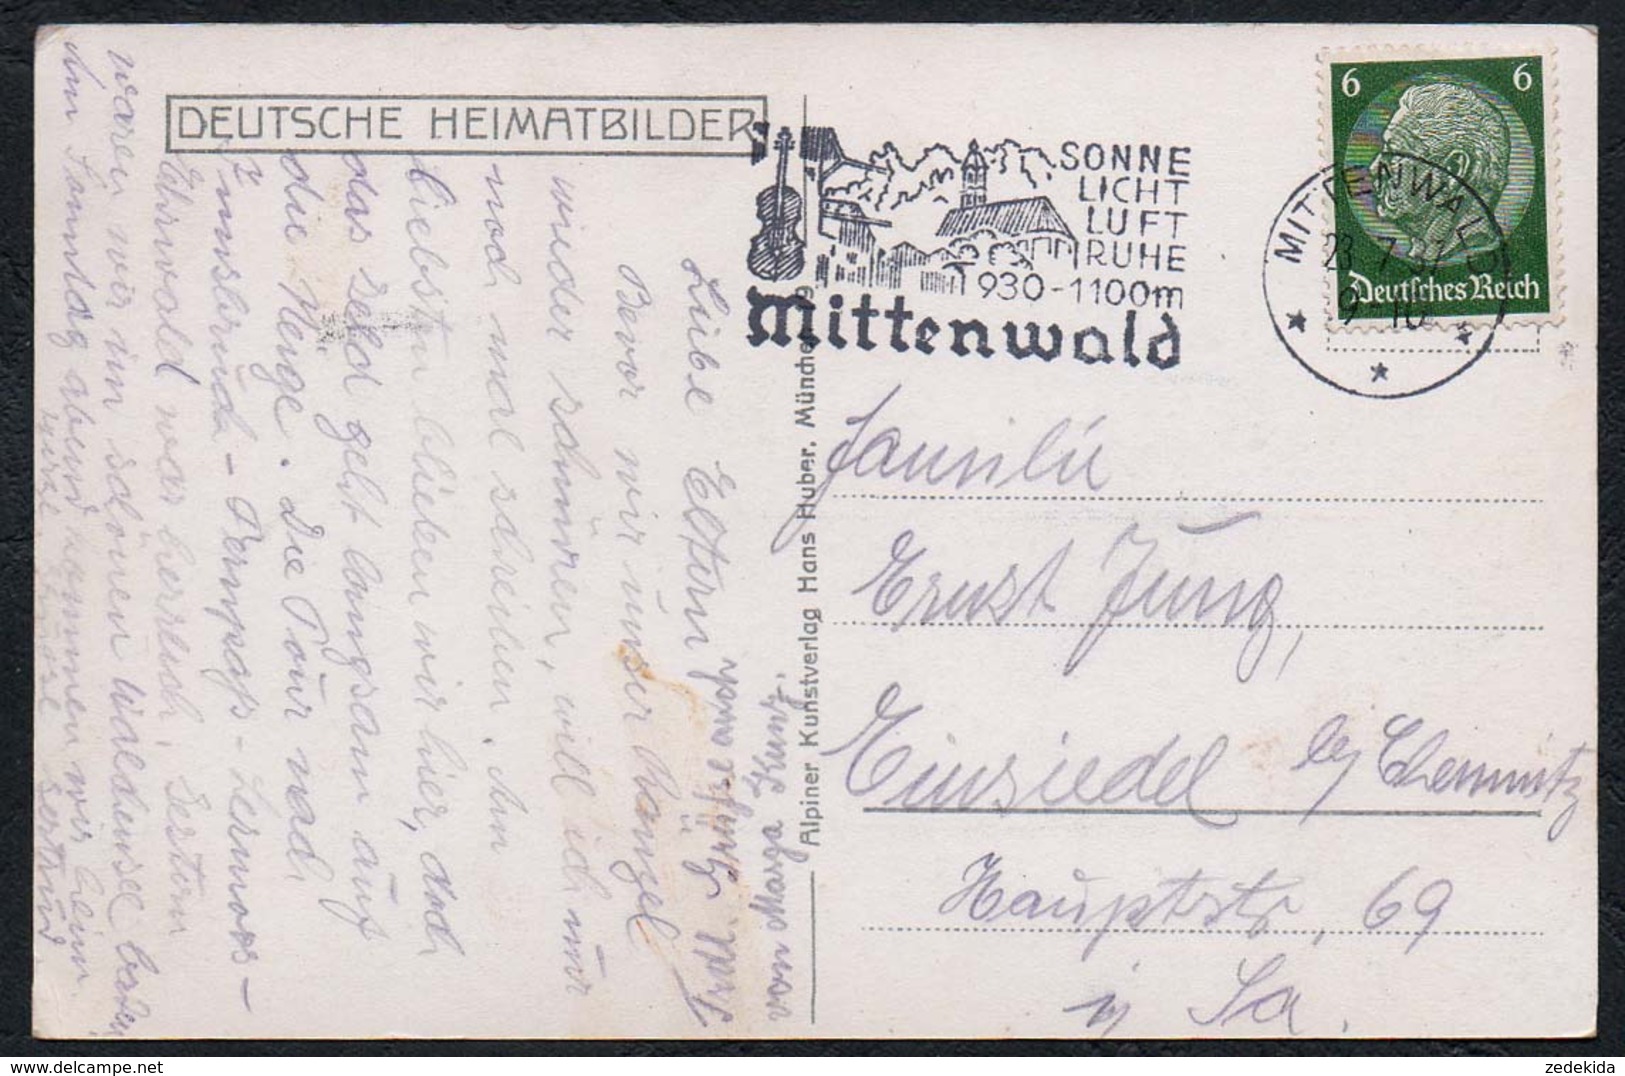 DEUTSCHE HEIMATBILDER
SONNE
LICHT
LUFT
RUHE
930-1100m
Mittenwald
6 6
Deutsches Reich
MITTENWALD
23.7.37
9-10
Alpiner Kunstverlag Hans Huber, München 9
Familie
Ernst Jung,
Einsiedel b/ Chemnitz
Hauptstr. 69
i/ Sa.
Liebe Eltern
Bevor wir unser Bangel
wieder schnüren, will ich nur
noch mal schreiben. Am
liebsten blieben wir hier, doch
das Geld geht langsam auf
die Neige. Die Tour nach
Innsbruck - Fernpass - Lermoos -
Ehrwald war herrlich. Gestern
waren wir im schönen Waldensee baden
Am Sonntag abend kommen wir heim.
Gertrud
von Marga Kunz.
zedekida